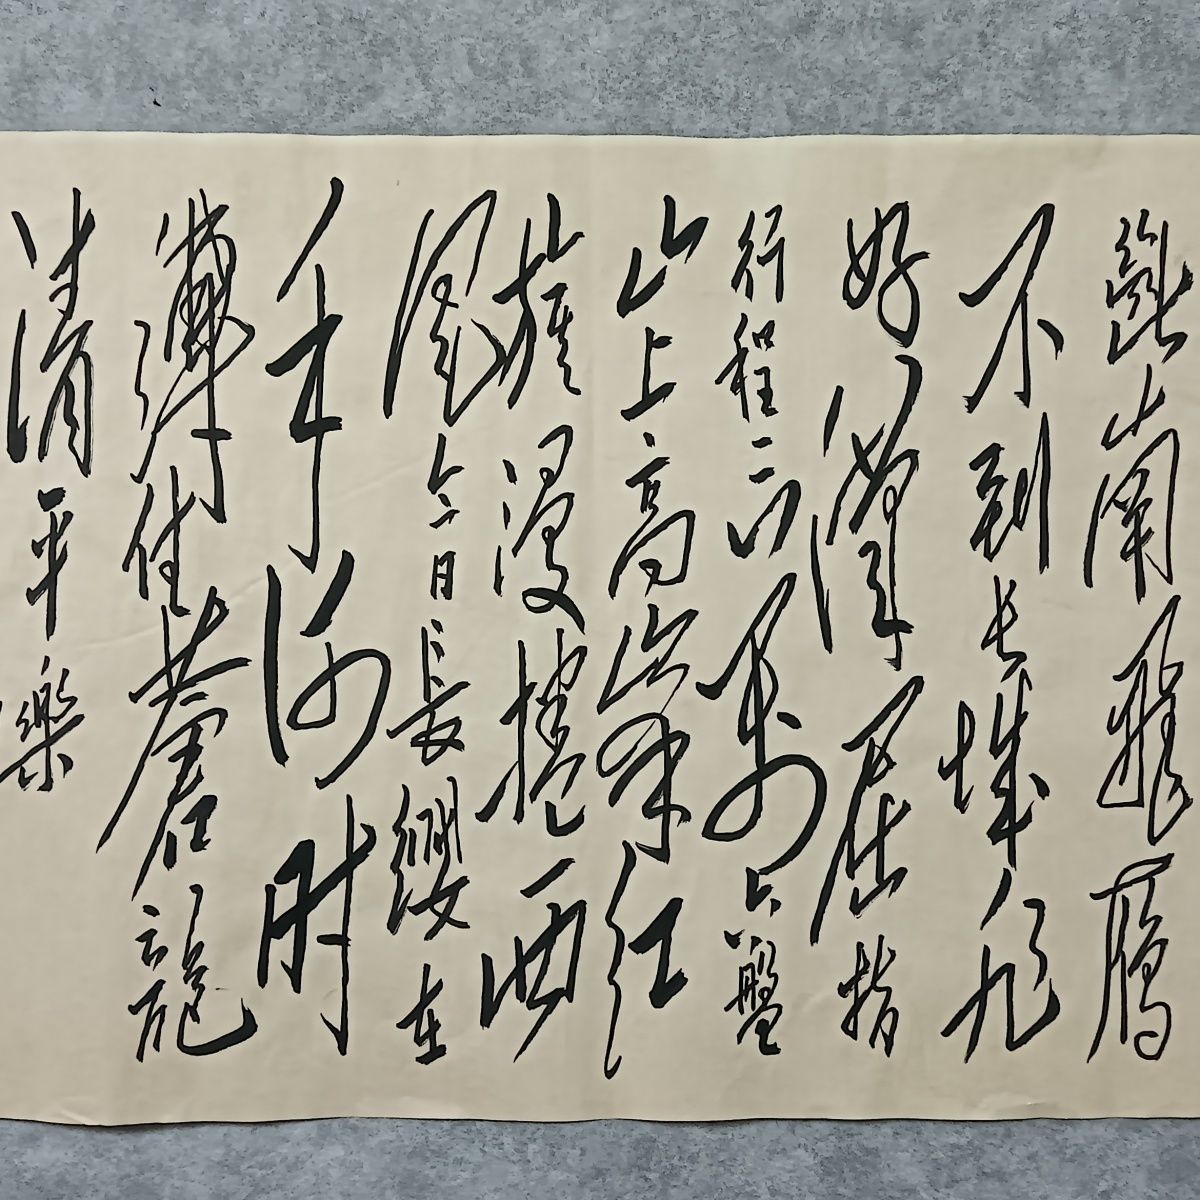 斷南飛雁
不到長城非
好漢屈指
行程二萬六盤
山上高峰紅
旗漫捲西
風今日長纓在
手何時
縛住蒼龍
清平樂